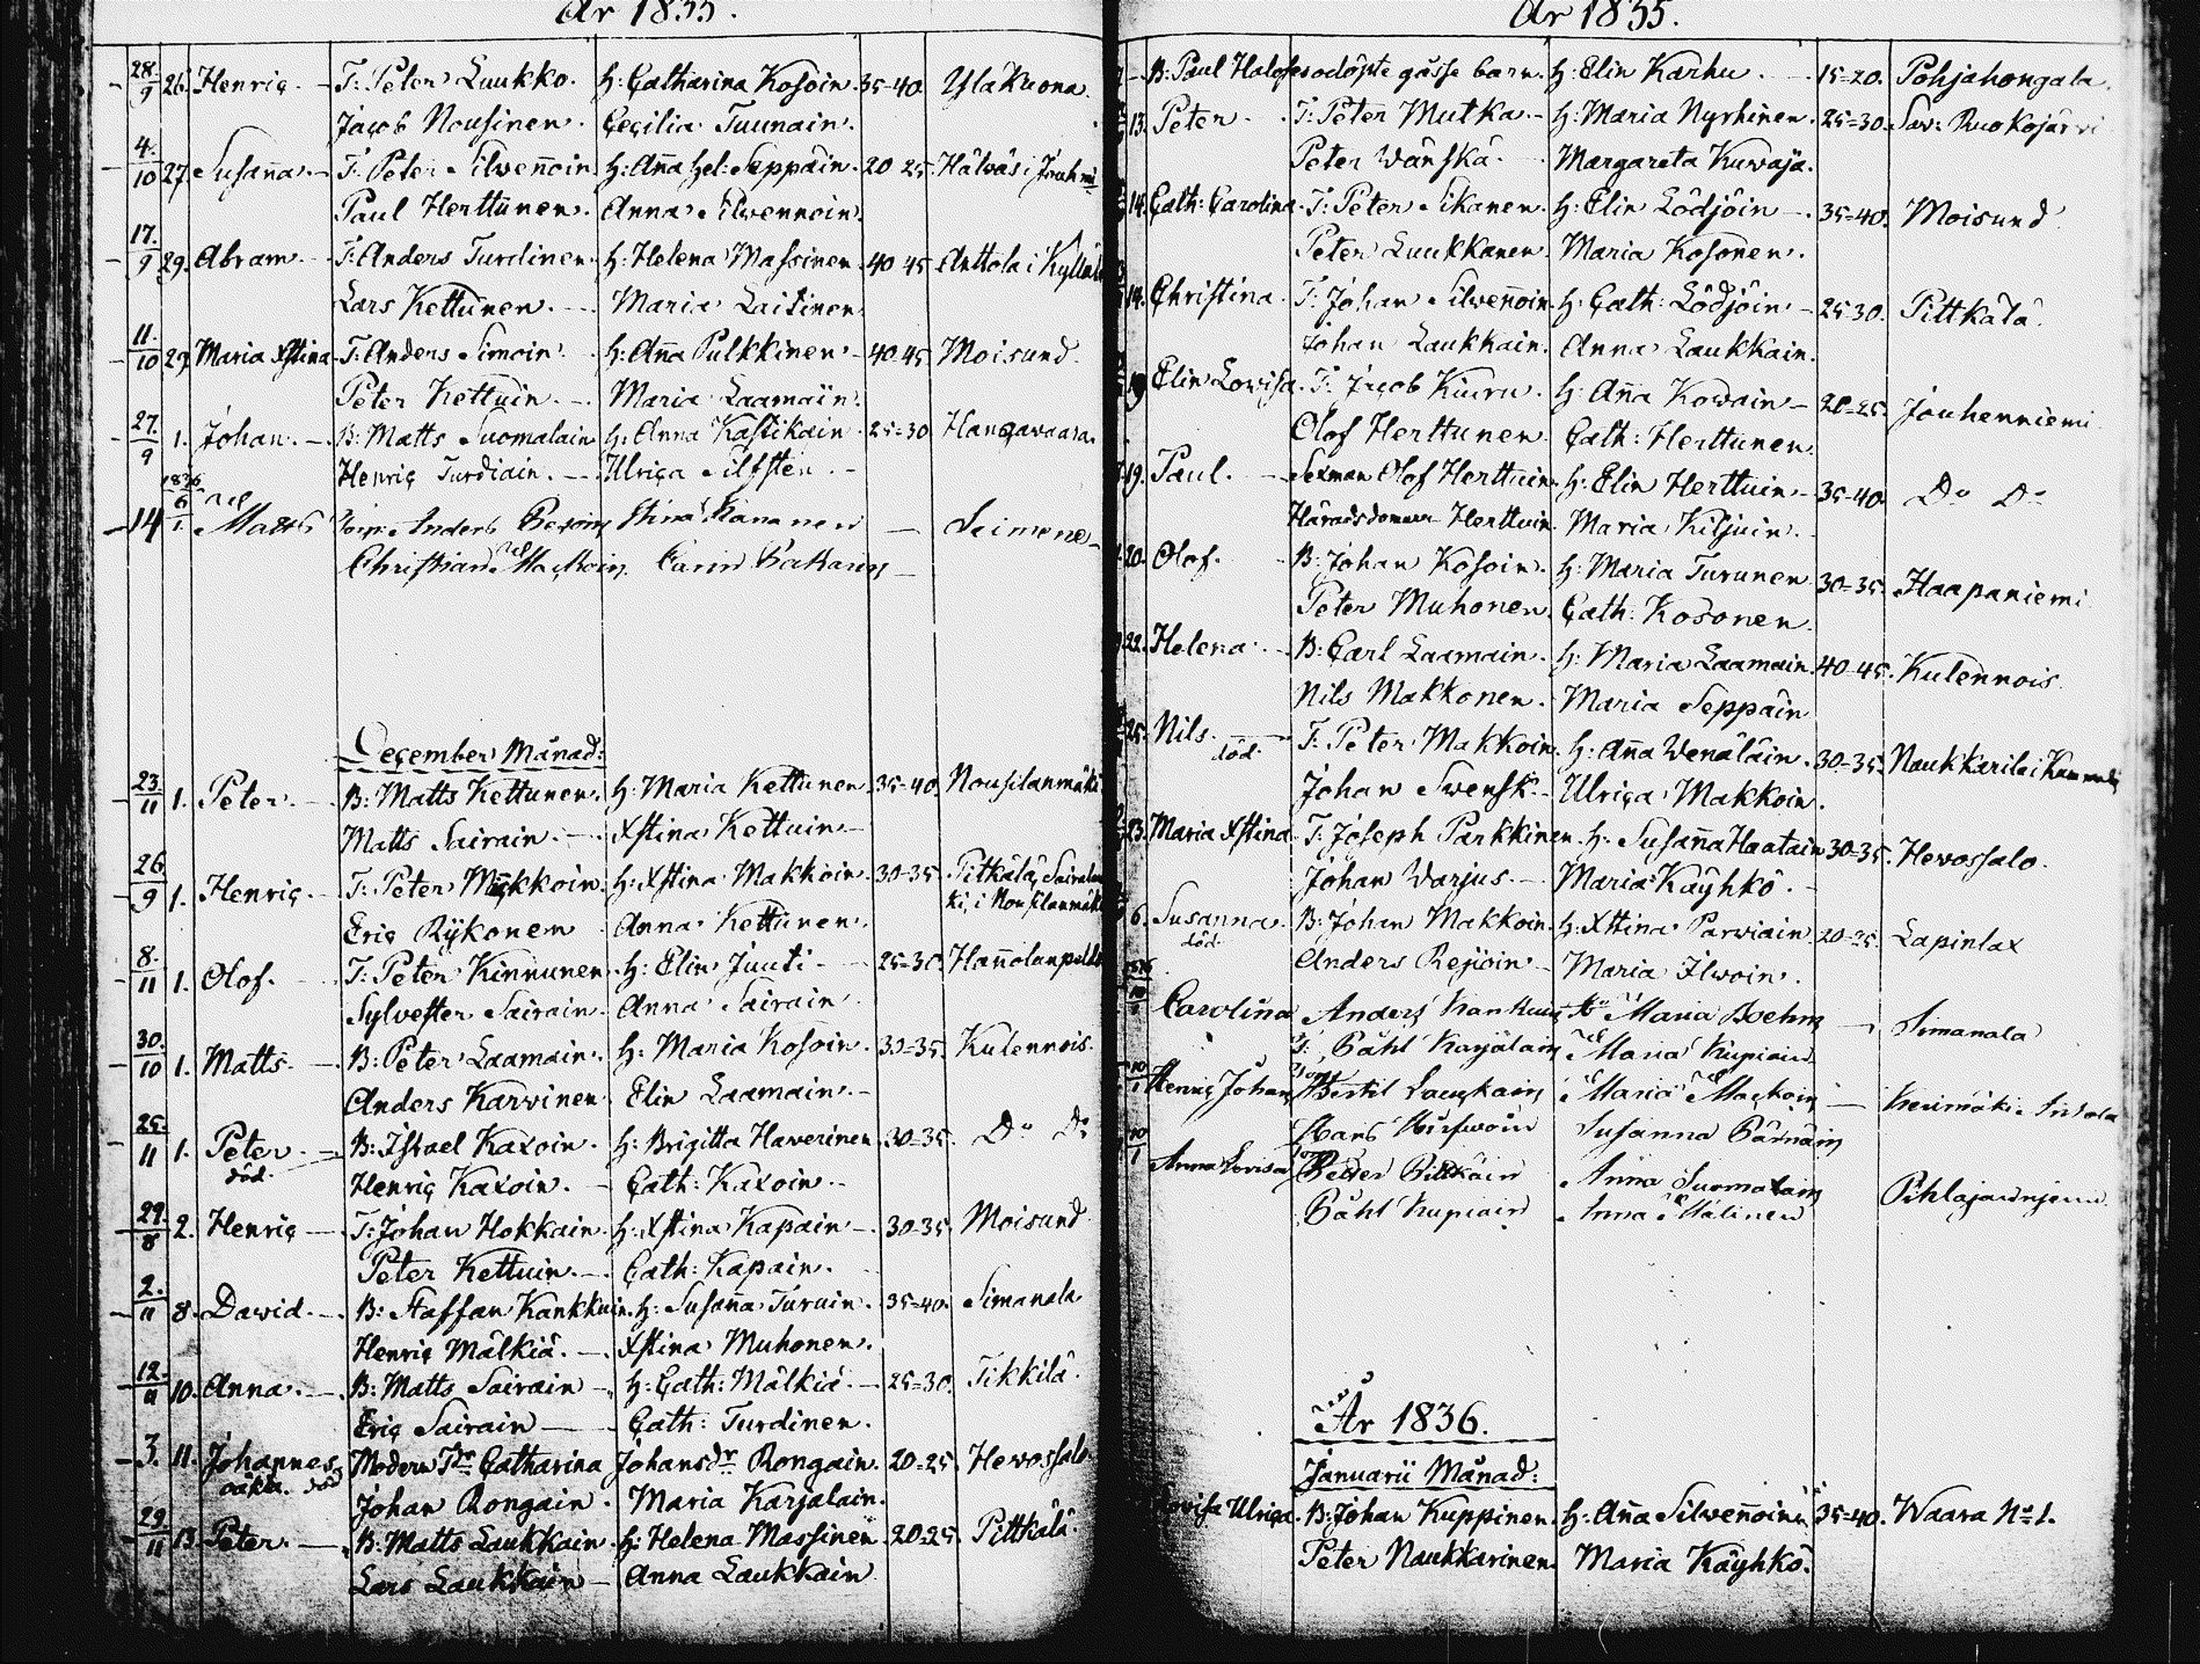 År 1835.
28/9 26. Henric. T: Peter Luukko. H: Catharina Kosoin. 35-40. Yläkuona.
Jacob Nousinen. Cecilia Tuunain.
4./10 27. Susaña. T: Peter Silweñoin H: Aña Hel: Seppäin. 20 25. Hälwäs i Jouhni
Paul Herttunen. Anna Silwennoin.
17./9 29. Abram. T: Anders Turdinen. H: Helena Massinen. 40 45 Anttola i
Lars Kettunen. Maria Laitinen
11./10 29. Maria Xstina T: Anders Simoin. H: Aña Pulkkinen 40-45. Moisund.
Peter Kettuin. Maria Laamain.
27./9 1. Johan. B: Matts Suomalain H: Anna Kastikain. 25=30 Hangawaara.
Henric Turdiain. Ulrica Silfsten.
1836
14 6/1. Matts Anders Stina Kananen Seimene
Christian Carin
December Månad:
23./11 1. Peter. B: Matts Kettunen. H: Maria Kettunen. 35-40. Nousilanmäki
Matts Sairain. Xstina Kettuin
26./9 1. Henric T: Peter Makkoin. H: Xstina Makkoin. 30-35. Pitkälä,
Eric Rÿkonen Anna Kettunen.
8./11 1. Olof. T: Peter Kinnunen. H: Elin Juuti 25=30. Hañolanpelto
Sylvester Sairain. Anna Sairain.
30./10 1. Matts. B: Peter Laamain. H: Maria Kosoin. 30=35. Kulennois.
Anders Karvinen Elin Laamain.
25./11 1. Peter död. B: Israel Kaxoin. H: Brigitta Haverinen. 30=35. Do Do
Henric Kaxoin. Cath: Kaxoin.
29./8 2. Henric T: Johan Hokkain. H: Xstina Kapain 30-35. Moisund
Peter Kettuin. Cath: Kapain.
2./11 8. Dawid. B: Staffan Kankkuin. H: Susaña Turuin. 35=40. Simanala
Henric Mälkiä. Xstina Muhonen.
12./11 10. Anna. B: Matts Sairain H: Cath: Mälkiä. 25=30. Tikkilä.
Eric Sairain Cath: Turdinen.
3. 11. Johannes oäkta. död Modern Catharina Johansdr Rongain. 20=25. Hewossalo
Johan Rongain. Maria Karjalain.
29./11 13. Peter. B: Matts Laukkain. H: Helena Massinen. 20=25. Pittkälä.
Lars Laukkain Anna Laukkain
År 1835.
B: Paul Halo odöpte gosse barn. H: Elin Karhu. 15=20. Pohjahongala.
13. Peter. T: Peter Mutka. H: Maria Nyrhinen. 25=30. Sav: Ruokojärvi
Peter Wänskä. Margareta Kuwaja.
14. Cath: Carolina. T: Peter Sikanen. H: Elin Lödjöin 35=40. Moisund
Peter Luukkanen Maria Kosonen.
14. Christina. T: Johan Silweñoin. H: Cath: Lödjöin 25=30. Pittkälä.
Johan Laukkain. Anna Laukkain.
19. Elin Lowisa. T: Jacob Kiuru. H: Aña Kowain 20=25. Jouhenniemi
Olof Herttunen. Cath: Herttunen.
19. Paul. Sexman Olof Herttuin. H: Elin Herttuin 35=40. Do Do
Häradsdomare Herttuin. Maria Kiljuin.
20. Olof. B: Johan Kosoin. H: Maria Turunen. 30=35. Haapaniemi
Peter Muhonen. Cath: Kosonen.
22. Helena. B: Carl Laamain. H: Maria Laamain. 40-45. Kulennois.
Nils Makkonen. Maria Seppäin
25. Nils. död. T: Peter Makkoin. H: Aña Wenäläin. 30=35. Naukkarila i
Johan Swensk. Ulrica Makkoin.
23. Maria Xstina T: Joseph Parkkinen. H: Susaña Haatain 30=35. Hewossalo.
Johan Warjus. Maria Käyhkö.
6. Susanna. död. B: Johan Makkoin. H: Xstina Parwiain. 20=25. Lapinlax
Anders Rejjoin Maria Ilwoin.
10/1 Carolina Anders Kankkuin Maria Boehm Simanala
Påhl Karjalain Maria Kupiain
10/1 Henric Johan Bertil Lauckain Maria Mackoin Kerimäki
Hans Susanna Pärnäin
10/1 Anna Lovisa Petter Pittkäin Anna Suomalain Pihlajaniemi
Påhl Kupiain Anna Mälinen
År 1836.
Januarii Månad:
Lovisa Ulrica. B: Johan Kuppinen. H: Aña Silweñoin 35=40. Waara No 1.
Peter Naukkarinen. Maria Käyhkö.